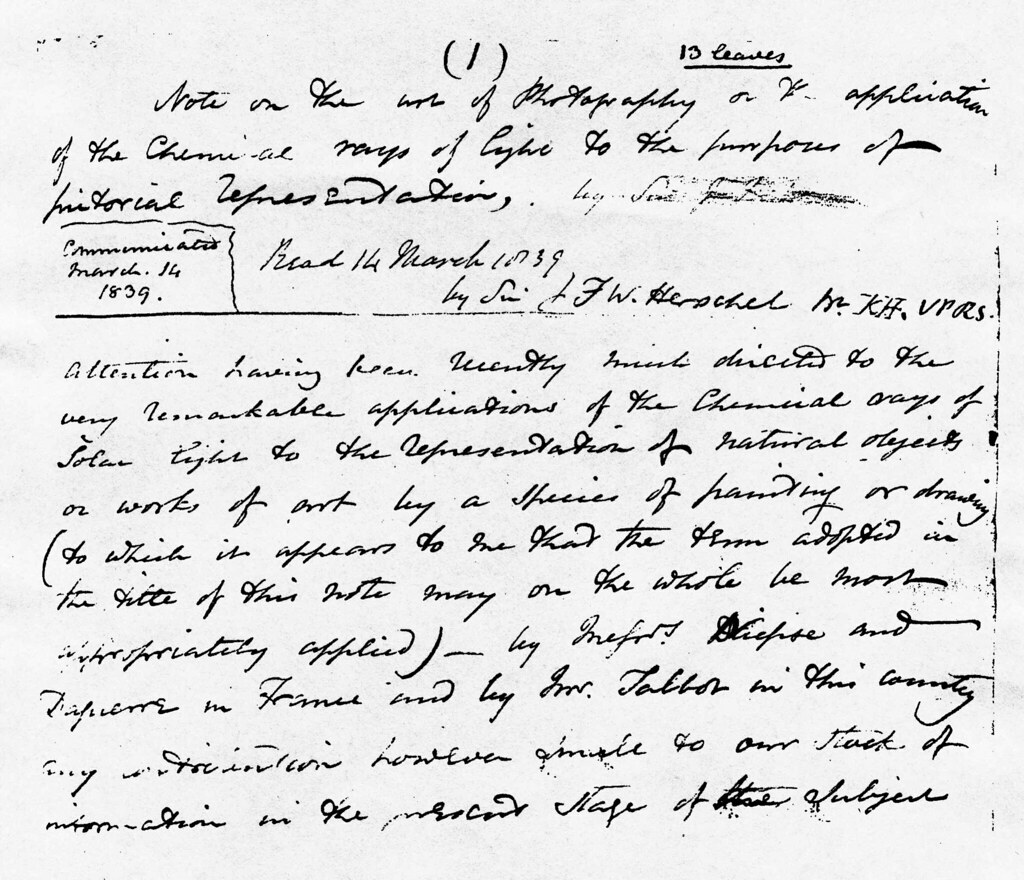 (1)
13 leaves
Note on the art of Photography or the application
of the Chemical rays of light to the purposes of
pictorial representation, by Sir
Communicated
March. 14
1839.
Read 14 March 1839
by Sir J F W. Herschel Bt. KH. VPRS.
Attention having been recently much directed to the
very remarkable applications of the Chemical rays of
Solar light to the representation of natural objects
or works of art by a species of painting or drawing
(to which it appears to me that the term adopted in
the title of this note may on the whole be most
appropriately applied) — by Messrs Niepse and
Daguerre in France and by Mr. Talbot in this country
any however to our stock of
information in the present stage of the subject